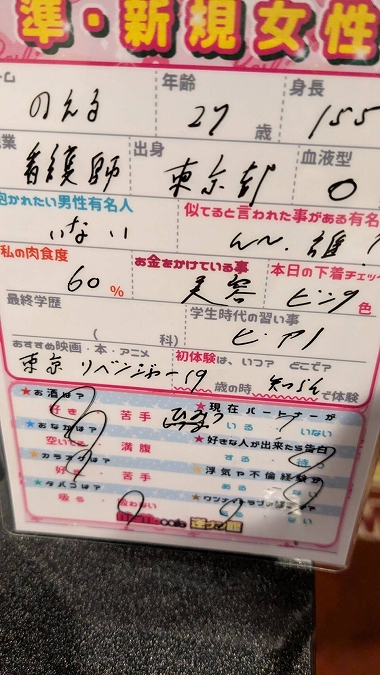 準・新規女性
ーム 年齢 身長
のえる 27 歳 155
業 出身 血液型
看護師 東京都 O
抱かれたい男性有名人 似てると言われた事がある有名
いない
私の肉食度 お金をかけている事 本日の下着チェッ
60 % 美容 ピンク 色
最終学歴 学生時代の習い事
( 科) ピアノ
おすすめ映画・本・アニメ 初体験は、いつ? どこで?
東京リベンジャー 19 歳の時 で体験
★お酒は? ★現在パートナーが
好き・苦手 いる・いない
★おなかは? ★好きな人が出来たら告白
空いてる・満腹 する・待つ
★カラオケは? ★浮気や不倫経験が
好き・苦手 ある・ない
★タバコは? ★ワンナイトラブの経験は?
吸う・吸わない ある・ない